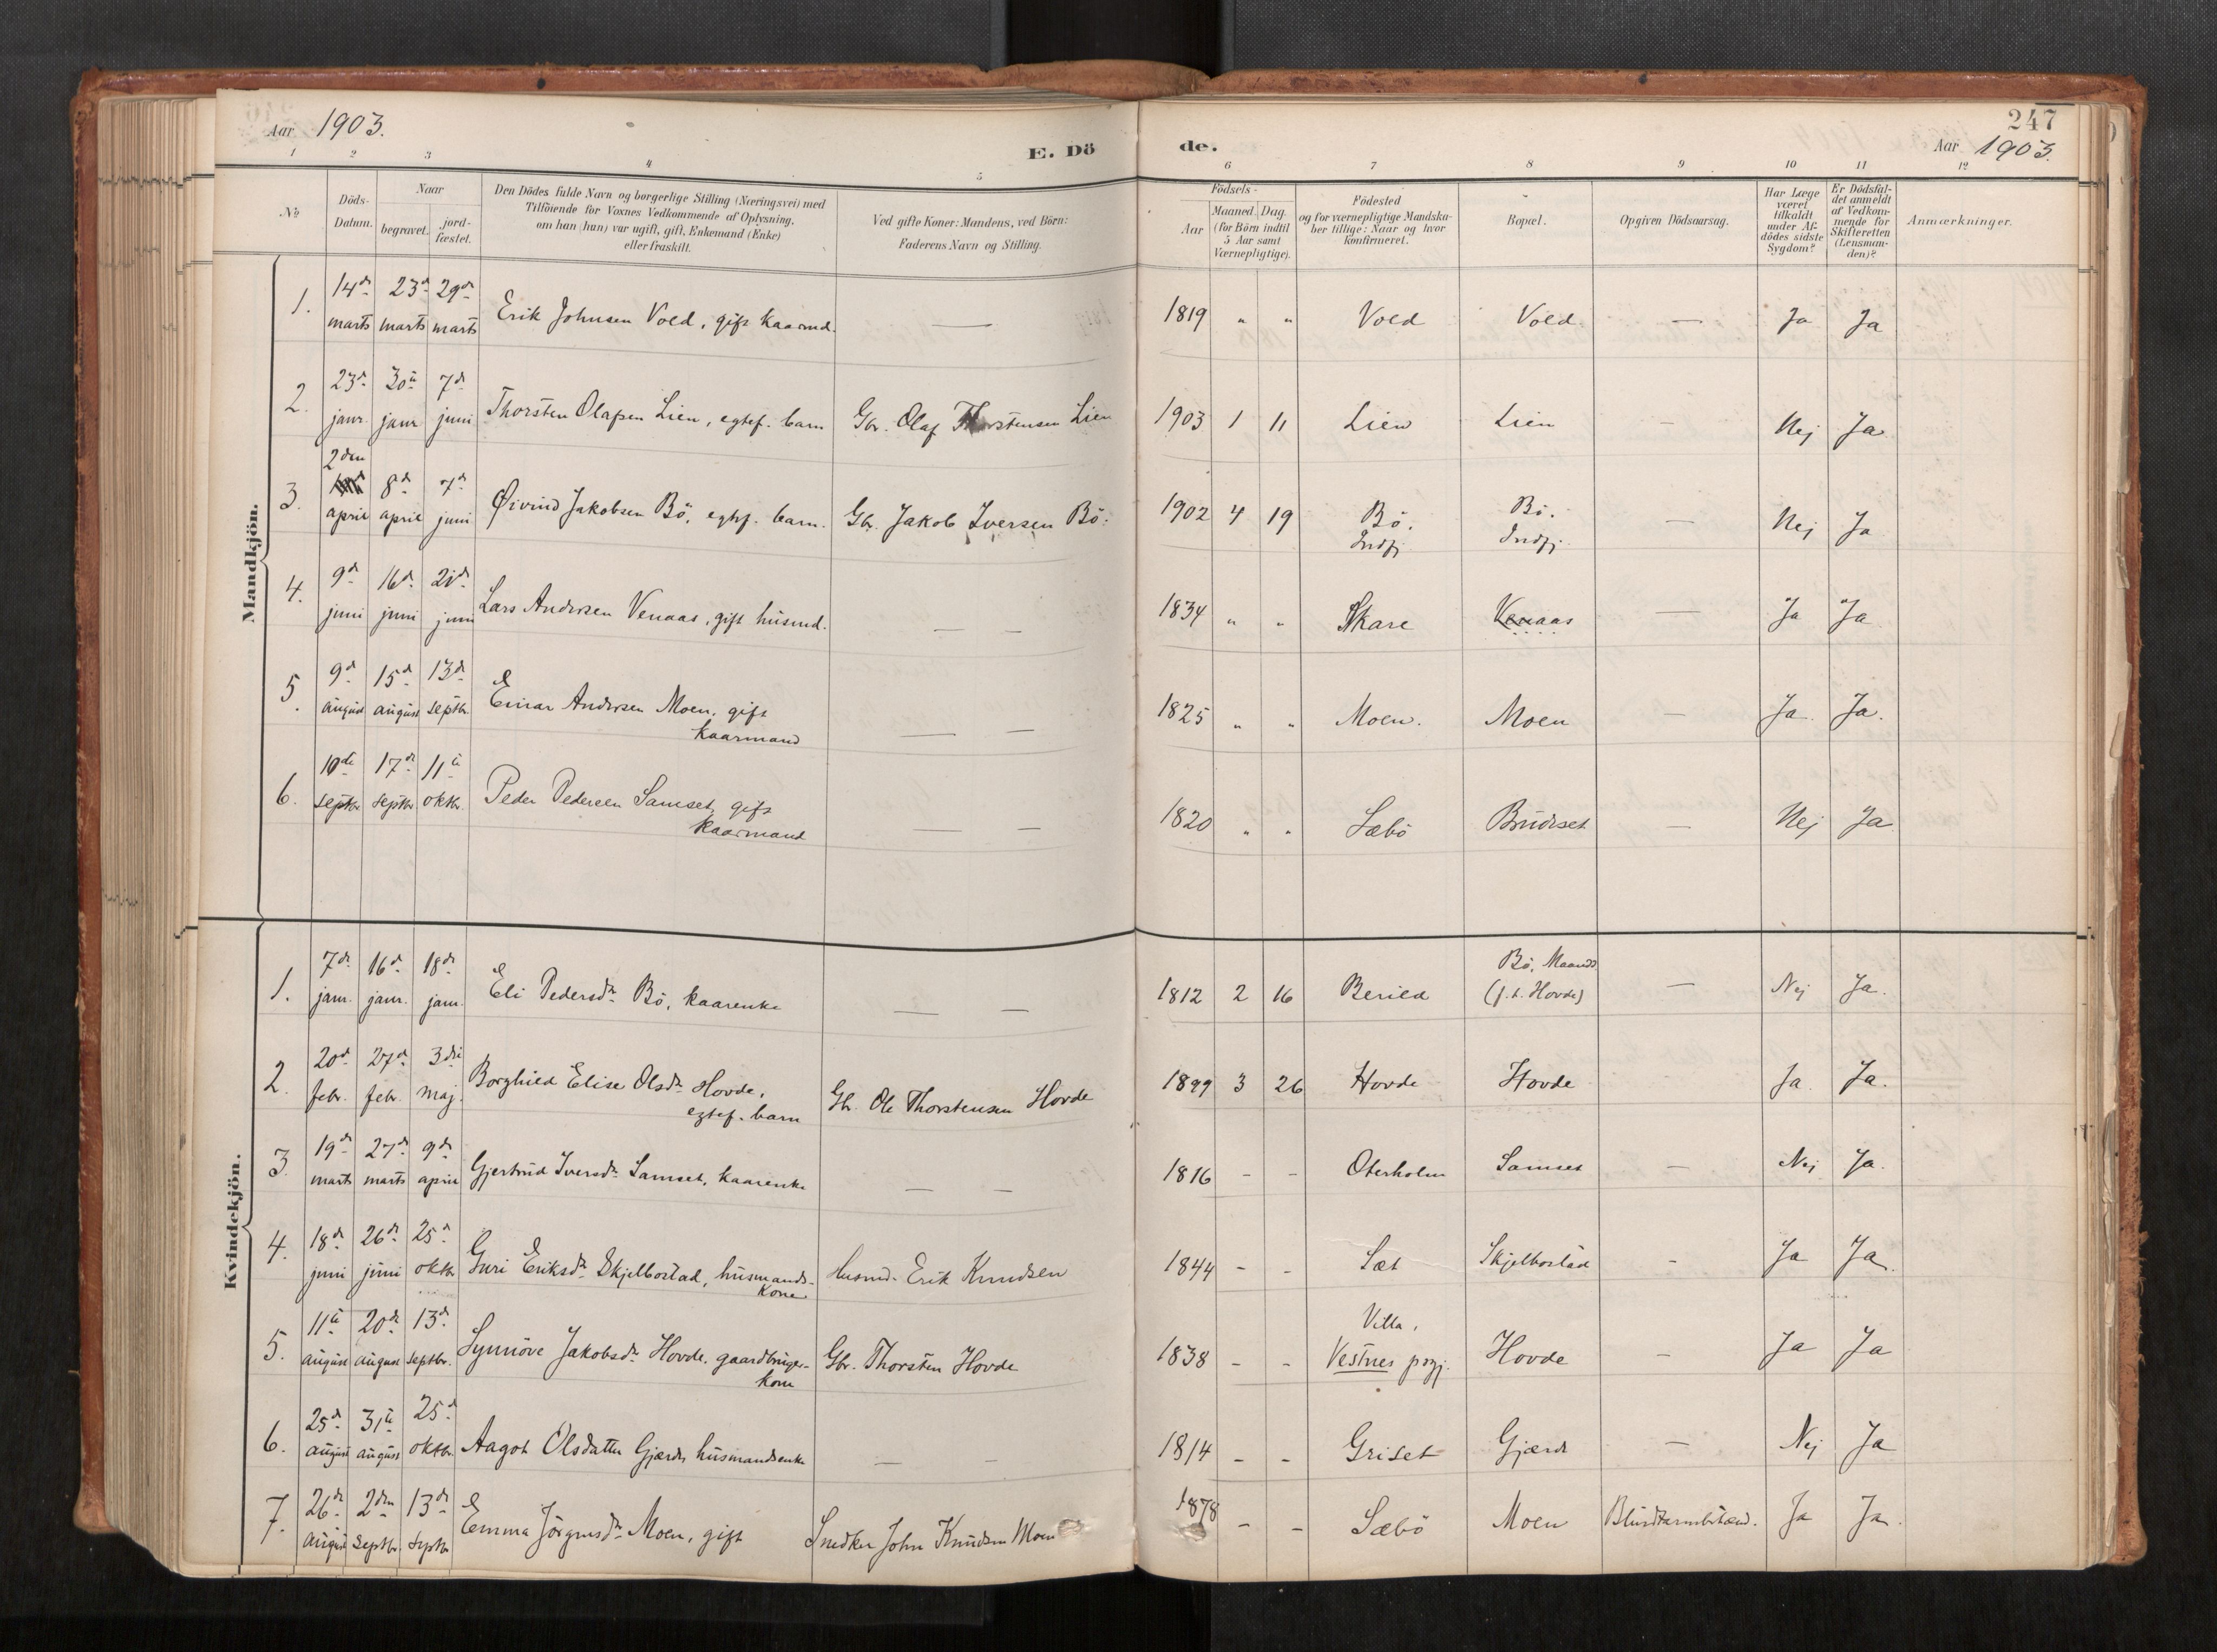 Aar 1903.
E. Dö
de.
247
Aar 1903.
1 2 3 4 5 6 7 8 9 10 11 12
No
Döds-
Datum.
Naar
begravet.
jord-
fæstet.
Den Dödes fulde Navn og borgerlige Stilling (Næringsvei) med
Tilföiende for Voxnes Vedkommende af Oplysning,
om han (hun) var ugift, gift, Enkemand (Enke)
eller fraskilt.
Ved gifte Koner: Mandens, ved Börn:
Faderens Navn og Stilling.
Födsels-
Aar
Maaned. Dag.
(for Börn indtil
5 Aar samt
Værnepligtige).
Födested
og for værnepligtige Mandska-
ber tillige: Naar og hvor
konfirmeret.
Bopæl.
Opgiven Dödsaarsag.
Har Læge
været
tilkaldt
under Af-
dödes sidste
Sygdom?
Er Dödsfal-
det anmeldt
af Vedkom-
mende for
Skifteretten
(Lensman-
den)?
Anmærkninger.
Mandkjön.
1. 14de 23de 29de
marts marts marts Erik Johnsen Vold, gift kaarmd. — 1819 " " Vold Vold — Ja Ja
2. 23de 30te 7de
janr. janr juni Thorsten Olafsen Lien, egtef. barn Gbr. Olaf Thorstensen Lien 1903 1 11 Lien Lien — Nej Ja
2den
3. 8de 7de
april april juni Øivind Jakobsen Bö, egtef. barn. Gbr. Jakob Iversen Bö. 1902 4 19 Bö. Bö. — Nej Ja
Indfj. Indfj.
4. 9de 16de 21de
juni juni juni Lars Andersen Venaas, gift husmd. — — 1834 " " Skare Venaas — Ja Ja
5. 9de 15de 13de
august august septbr. Einar Andersen Moen, gift
kaarmand — — 1825 " " Moen. Moen — Ja. Ja.
6. 10de 17de 11te
septbr septbr. oktbr. Peder Pedersen Samset, gift
kaarmand — — 1820 " " Sæbö Brudset — Nej Ja
Kvindekjön.
1. 7de 16de 18de
janr. janr. janr. Eli Pedersdr Bö, kaarenke — — 1812 2 16 Berild Bö, Maands
(f.t. Hovde) — Nej Ja.
2. 20de 27de 3die
febr. febr. maj. Borghild Elise Olsdr Hovde,
egtef. barn Gbr. Ole Thorstensen Hovde 1899 3 26 Hovde Hovde — Ja. Ja.
3. 19de 27de 9de
marts marts april Gjertrud Iversdr Samset, kaarenke — — 1816 - - Oterholm Samset — Nej Ja.
4. 18de 26de 25de
juni juni oktbr Guri Eriksdr Skjelbostad, husmands-
kone Husmd. Erik Knudsen 1844 - - Sæt Skjelbostad - Ja Ja.
5. 11te 20de 13de
august august septbr. Synnöve Jakobsdr Hovde, gaardbruger-
kone Gbr. Thorsten Hovde 1838 - - Villa,
Vestnes prgj. Hovde — Ja Ja
6. 25de 31te 25de
august august oktbr. Aagot Olsdatter Gjærde, husmandsenke — - 1814 - - Griset Gjærde — Nej Ja
7. 26de 2den 13de
august septbr. septbr Emma Jörgensdr Moen, gift Snedker John Knudsen Moen 1878 - - Sæbö Moen Blindtarmbetænd. Ja Ja.